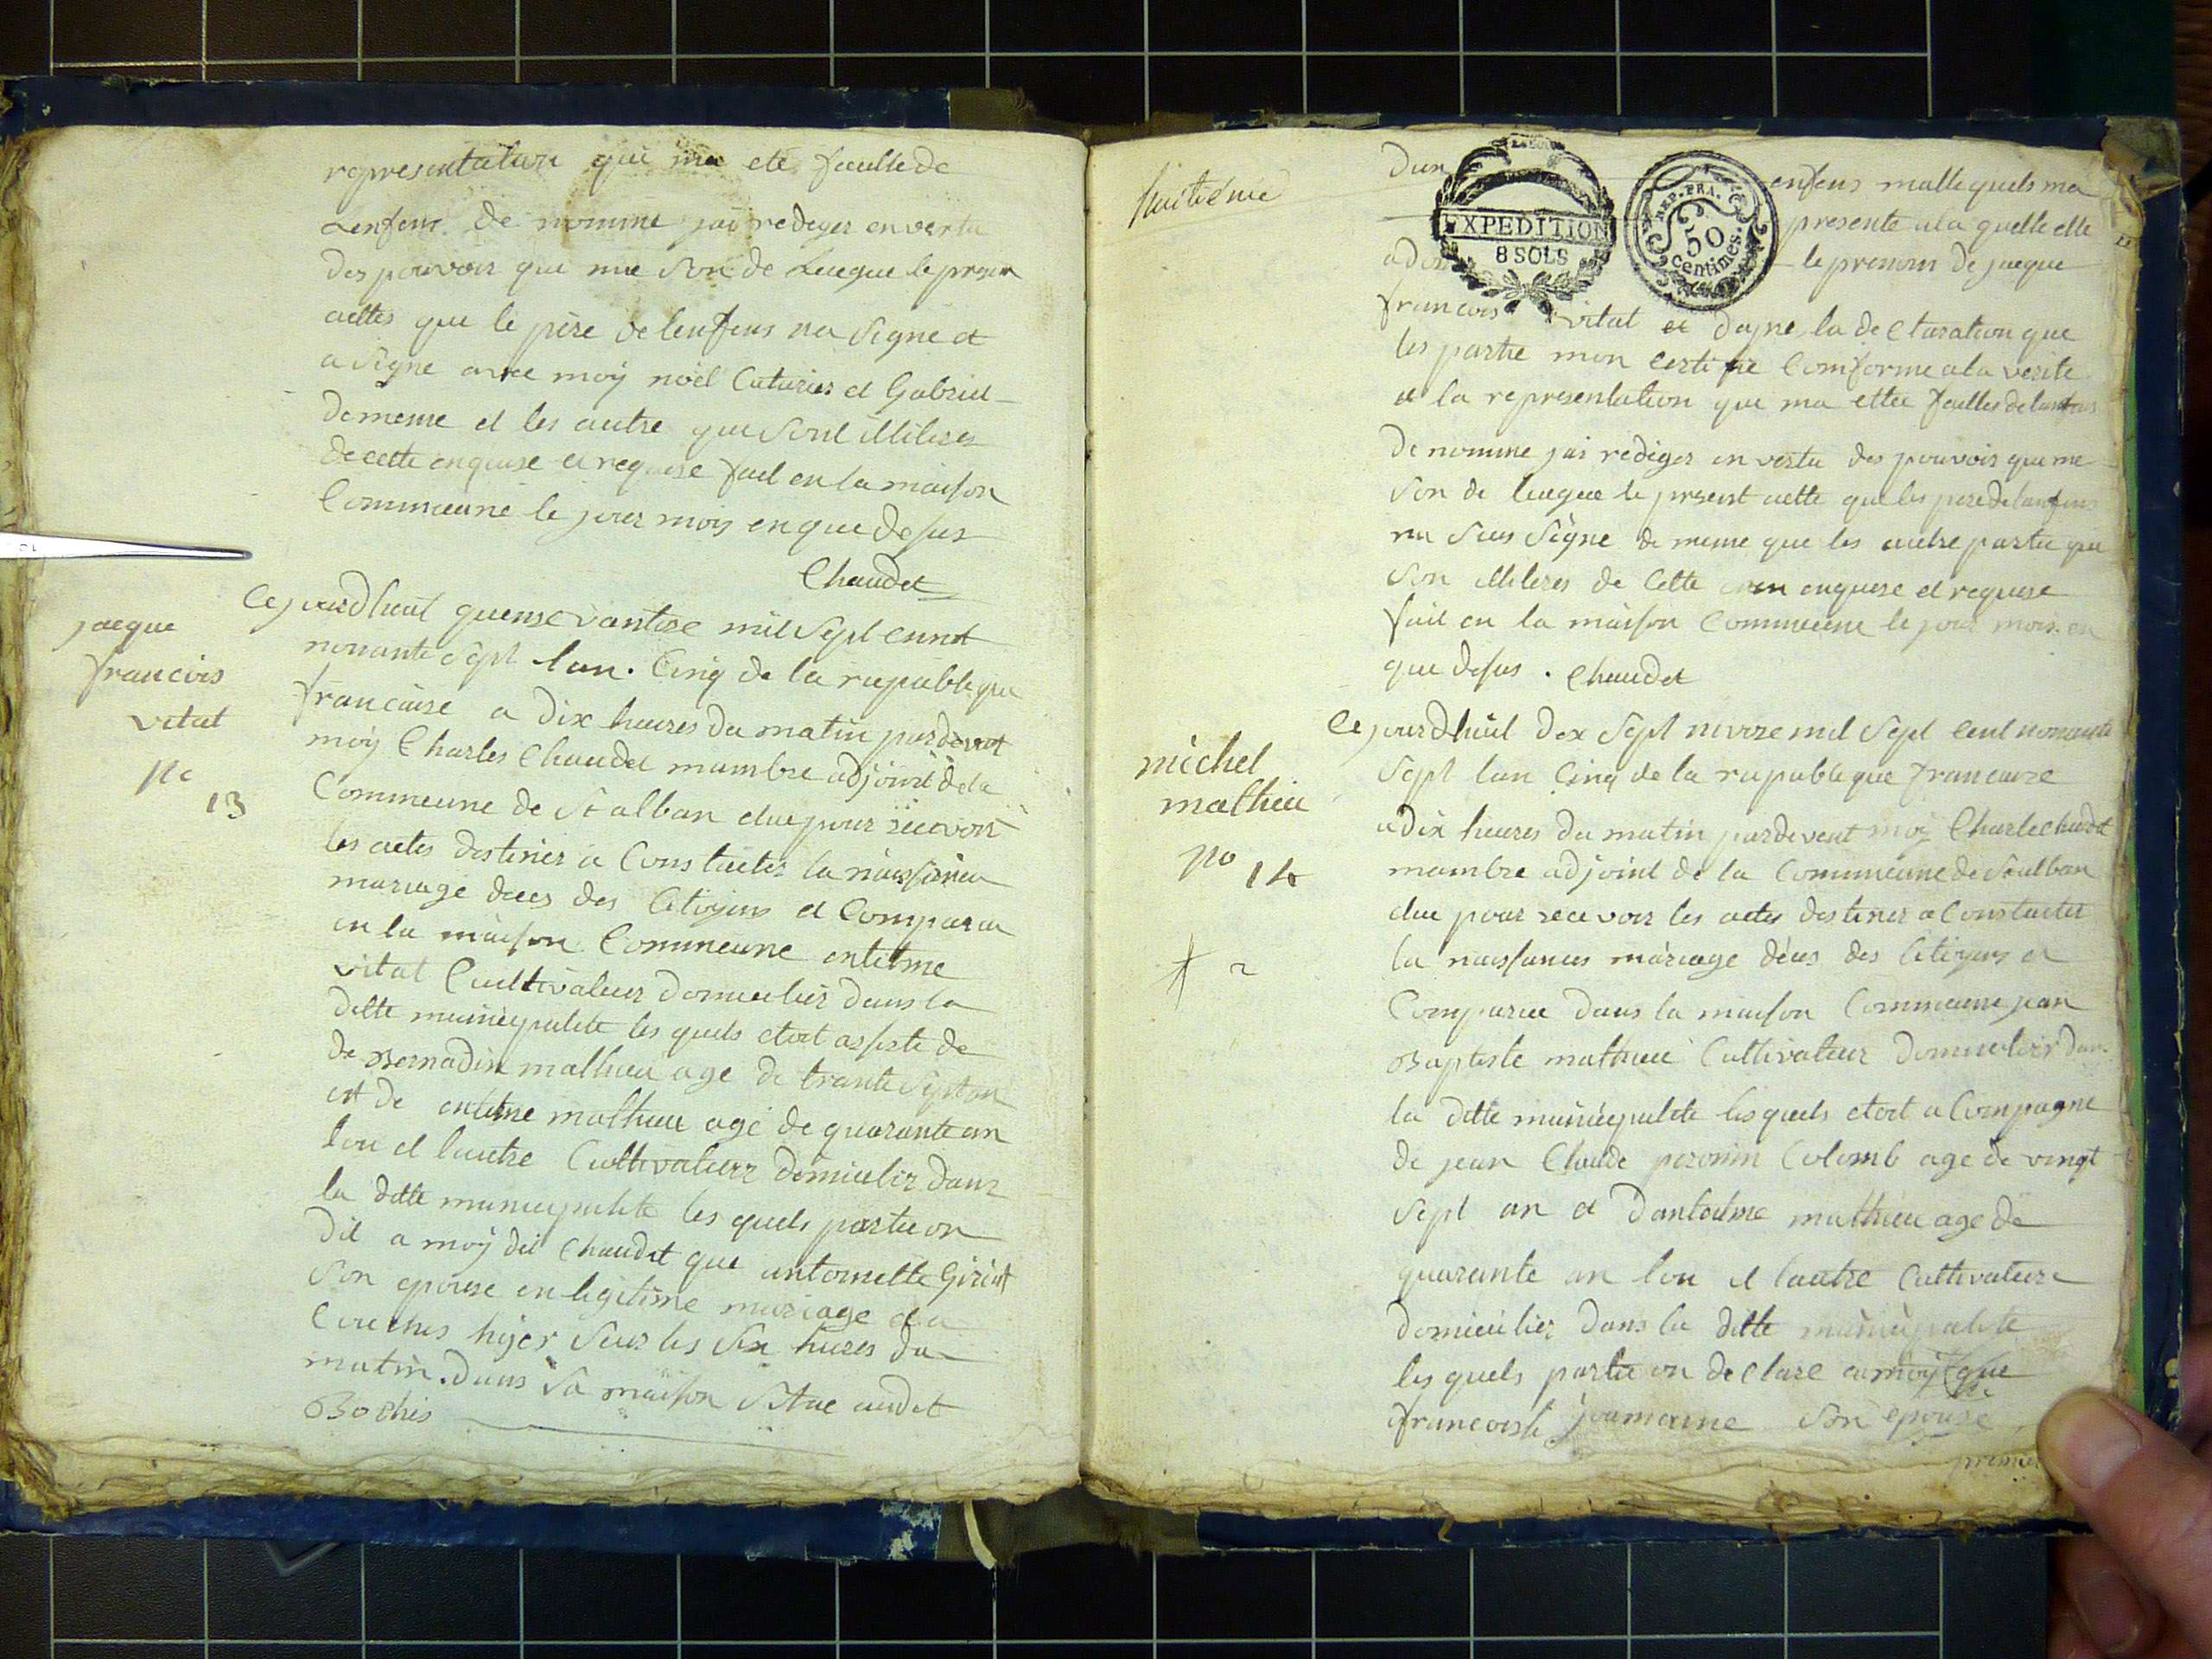 representation qui ma ete faulte de
Lenfens. de nomme jai rediger en vertu
des pouvoir que me son de Lueque le presen
actes que le père de lenfens na signe et
a signe avec moÿ noël Caturier et Gabriel
de meme et les autre que sont illiteres
de cette enquise et requise fait en la maison
Commeune le jour mois en que desus
Chaudet
jacque
francois
vitat
no
13
Ce jourdhuit quense vantose mil sept cennt
nonante sept lan. Cinq de la rupublique
francaise a dix heures du matin pardevat
moÿ Charles Chaudet mambre adjoint de la
Commeune de St alban elue pour recevoir
les actes destinés a Constacter la naissance
mariage deces des Citoyens et Comparu
en la maison Commeune entitme
vitat Cultivateur domicilier dans la
ditte municipalite les quels etoit assiste de
de Bernadin mathieu age de trante sept an
et de entitme mathieu agé de quarante an
lou et lautre Cultivateurs domicilier dans
la ditte municipalite les quels partie on
dit a moÿ dit Chaudet que antoinette Girint
son epouse en legitime mariage et a
Couches hijer sur les six hures du
matin. dans sa maison sitae audit
Bochis
huitieme
dun enfens malle quels ma
presente a la quelle elle
a don le prenom de jacque
francois vitat et dapre la declaration que
les partie mon certifie Comforme a la verite
et la representation que ma ettee faittes de lanfens
de nomme jai rediger en vertu des pouvoir que me
son de lueque le present actte que les pere de lanfens
na sus signe de meme que les autre partie qui
son illiteres de Cette enquise et requise
fait en la maison Commeune le jour mois en
que desus. Chaudet
michel
mathieu
no 14
Ce jourdhuit dix sept nivoze mil sept cent nonante
sept lan Cinq de la rupublique francaize
a dix heures du matin pardevent moÿ Charle chaudet
mambre adjoint de la Commeune de St alban
elue pour recevoir les actes destiner a Constacter
la naissances mariage déces des Citoyens et
Comparue dans la maison Commeune jean
Baptiste mathieu Cultivateur domicilier dans
la ditte municipalite les quels etoit a Compagne
de jean Claude peronin Colomb age de vingt
sept an et dantoitme mathieu age de
quarante an lou et lautre Cultivateurs
domicilier dans la ditte municipalite
les quels partie on declare a moÿ que
francoise joumarine son epouse
premie
EXPEDITION
8 SOLS
REP. FRA.
50
centimes.